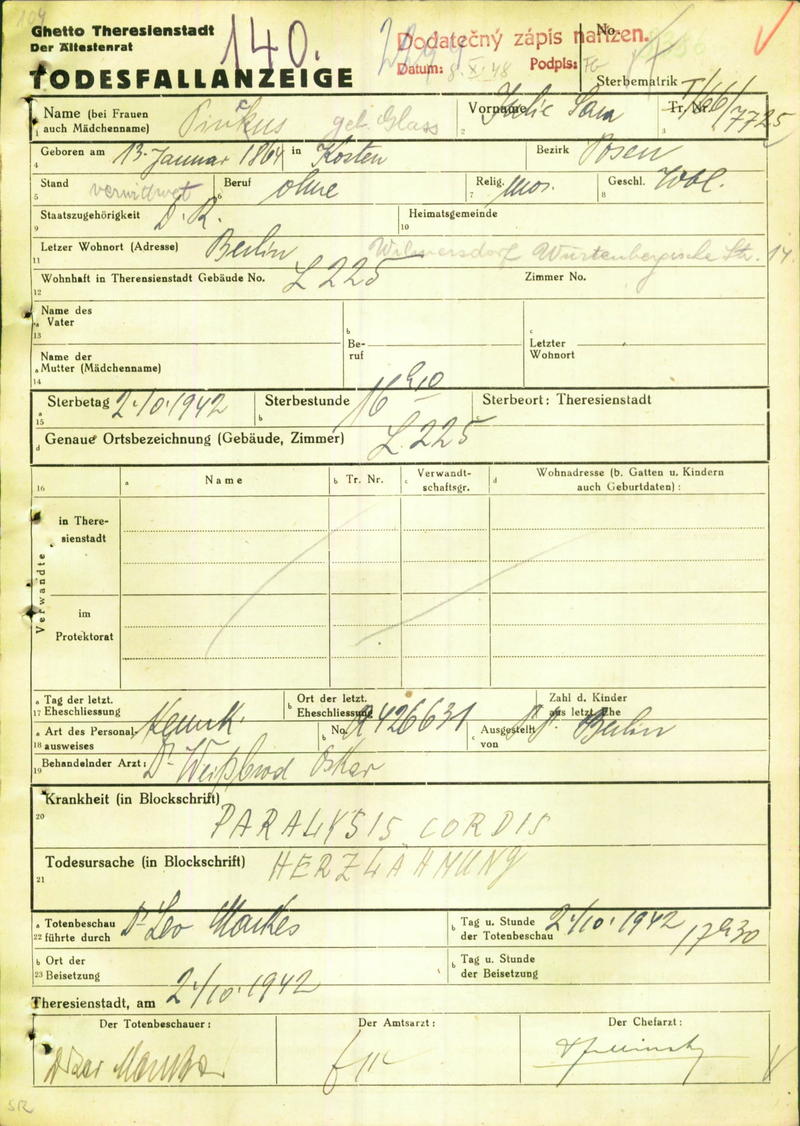 Ghetto Theresienstadt
Der Ältestenrat
140.
Dodatečný zápis nařízen.
Datum: 8. X. 48 Podpis:
TODESFALLANZEIGE
No.
Sterbematrik
Name (bei Frauen auch Mädchenname) Pinkus geb. Glass
Vorname Julie Sara
Tr. Nr. I/66/7725
Geboren am 13. Januar 1864 in Kosten Bezirk Posen
Stand verwitwet Beruf ohne Relig. mos. Geschl. Wbl.
Staatszugehörigkeit D.R. Heimatsgemeinde
Letzer Wohnort (Adresse) Berlin Wilmersdorf Würtenbergische Str. 14.
Wohnhaft in Therensienstadt Gebäude No. L 225 Zimmer No.
Name des Vater
Beruf
Letzter Wohnort
Name der Mutter (Mädchenname)
Sterbetag 2./10. 1942 Sterbestunde 16 Sterbeort: Theresienstadt
Genaue Ortsbezeichnung (Gebäude, Zimmer) L 225
16 Name Tr. Nr. Verwandtschaftsgr. Wohnadresse (b. Gatten u. Kindern auch Geburtdaten) :
Verwandte
in Theresienstadt
im Protektorat
Tag der letzt. Eheschliessung
Ort der letzt. Eheschliessung
Zahl d. Kinder aus letzt. Ehe
Art des Personalausweises Kennk. No. A426631 Ausgestellt von Berlin
Behandelnder Arzt: Dr Weißbrod Oskar
Krankheit (in Blockschrift) PARALYSIS CORDIS
Todesursache (in Blockschrift) HERZLÄHMUNG
Totenbeschau führte durch Dr Leo
Tag u. Stunde der Totenbeschau 2./10. 1942 17 30
Ort der Beisetzung
Tag u. Stunde der Beisetzung
Theresienstadt, am 2./10. 1942
Der Totenbeschauer: Der Amtsarzt: Der Chefarzt: